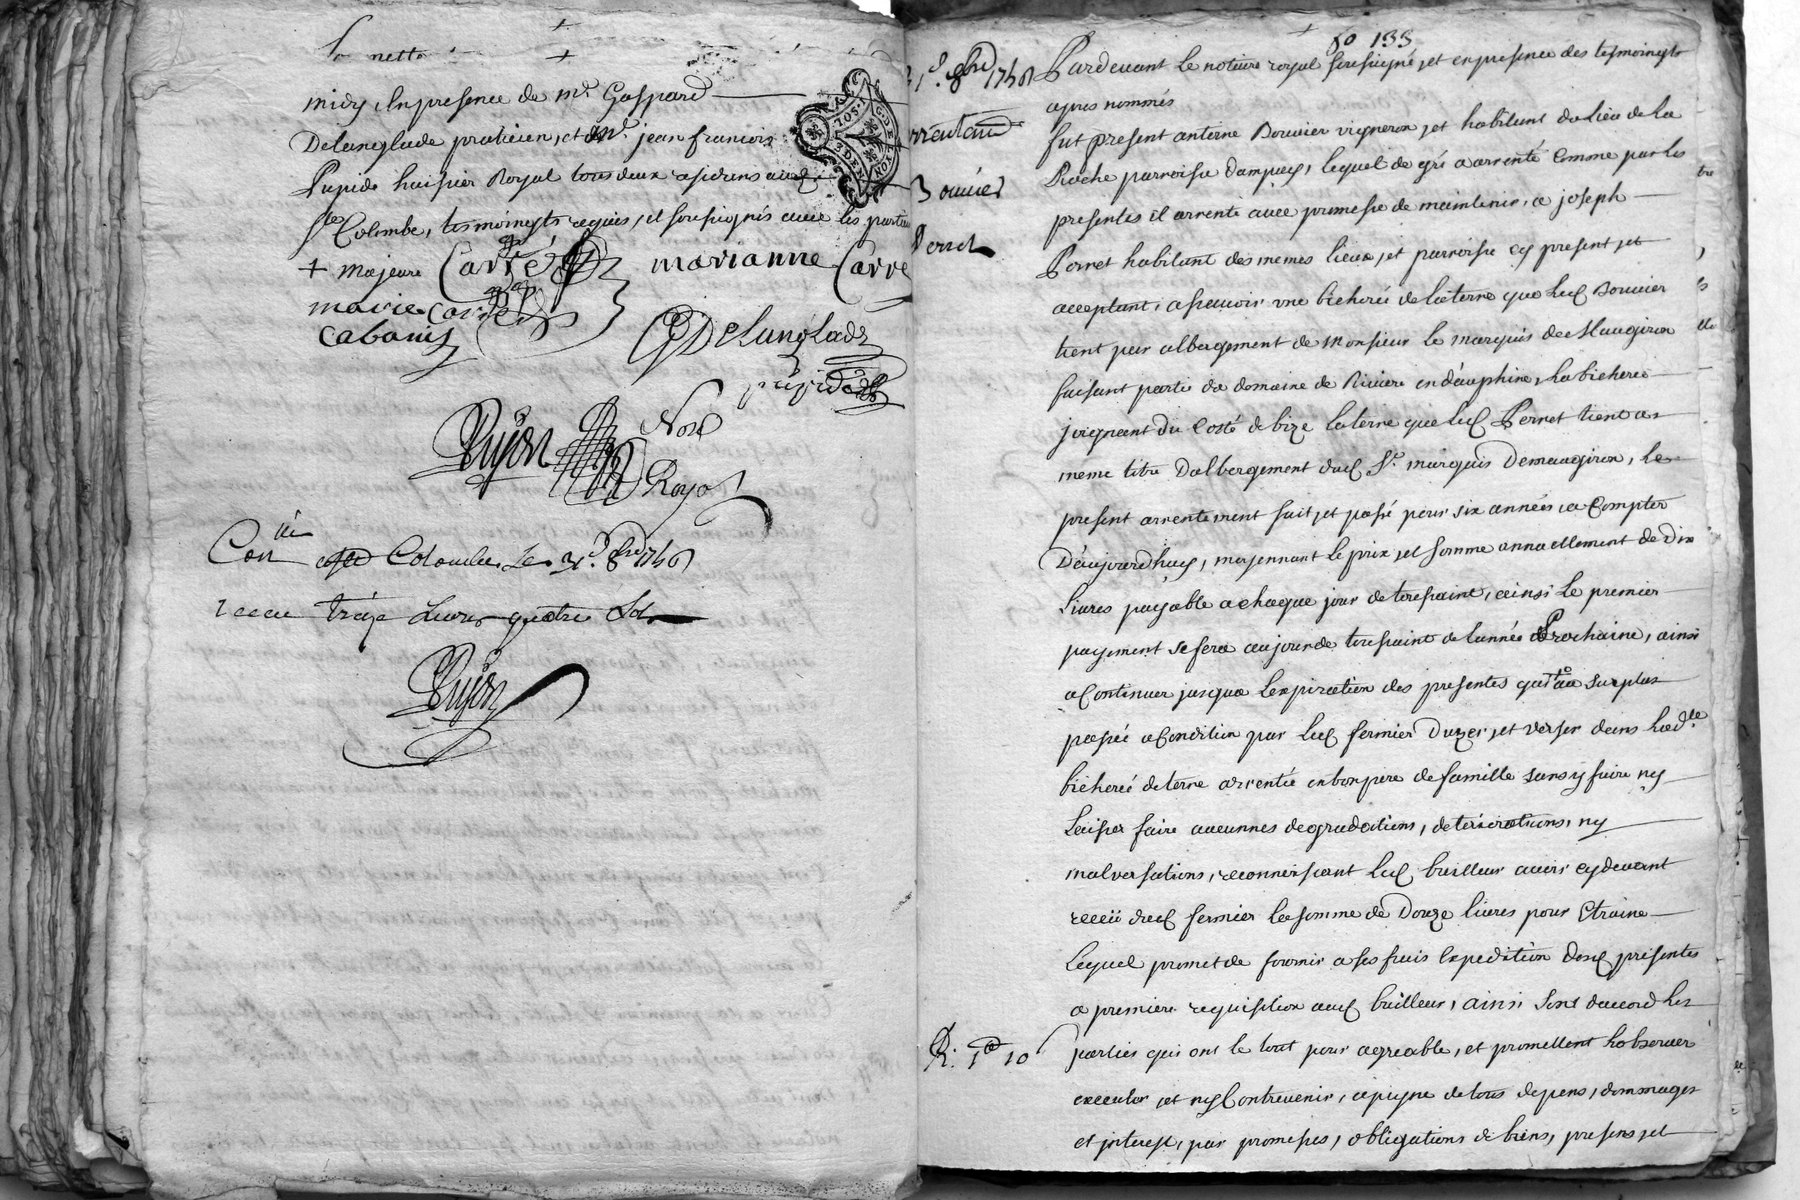 midy, En presence de mr. Gaspard
Delanglade praticien, et de mr. jean francois
Pupide huissier Royal tous deux residens aud.
Ste. Colombe, tesmoingts requis, et soussignés avec les parties
+ majeure Carré marianne Carre
marie Carre
Cabanis
GDelanglade
pupide
Guyon Nore
Royal
Con. a Ste Colombe Le 31e. 8bre 1746
receu treize Livres quatre sols
Guyon
fo 133
31e. 8bre 1746
arrentemt
Bouvier
Pernet
Pardevant Le notaire royal soussigné, et en presence des tesmoingts
apres nommés
fut present antoine Bouvier vigneron, et habitant du Lieu de La
Roche parroisse dampuys, lequel de gré a arrenté Comme par les
presentes il arrente avec promesse de maintenir, a joseph
Pernet habitant des memes lieux, et parroisse cy present, et
acceptant, a scavoir une bicherée de terre que led. Bouvier
tient par albergement de Monsieur le marquis de Maugiron
faisant partie du domaine de Riviere en dauphine, La bicherée
joignant du Costé de bize la terre que led. Pernet tient a
meme titre D'albergement dud. Sr. marquis Demaugiron, Le
present arrentement fait, et passé pour six années, a Compter
D'aujourdhuy, moyennant Le prix, et somme annuellement de Dix
Livres payable a chaque jour de toussaint, ainsi Le premier
payement se fera au jour de toussaint de L'année Prochaine, ainsi
a Continuer jusqua L'expiration des presentes qui au surplus
passée a Condition par Led. fermier D'uzer, et verser dans Lad.te
bicherée de terre arrentée en bon pere de famille sans y faire ny
Laisser faire aucunnes degradations, deteriorations, ny
malversations, reconnoissant Led. bailleur avoir cy devant
receü dud. fermier La somme de Douze livres pour Etraine
Lequel promet de fournir a ses frais Expedition des presentes
a premiere requisition aud. bailleur, ainsi sont daccord Les
R. 1# 10s parties qui ont le tout pour agreable, et promettent L'observer
executer, et ny Contrevenir, a peyne de tous depens, dommages
et interest, par promesses, obligations de biens, presens, et